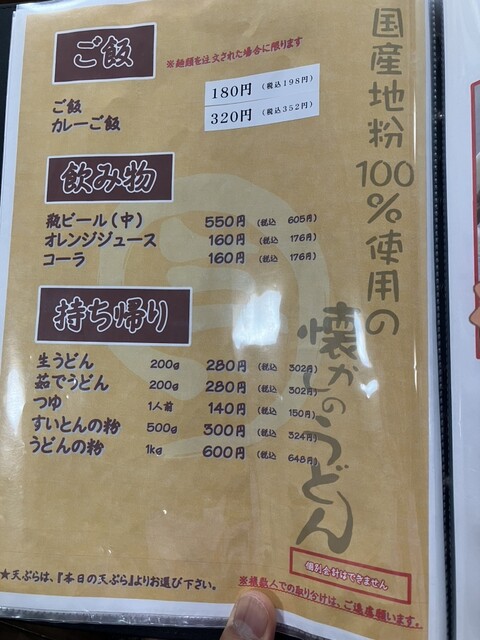 国産地粉100%使用の
懐かしのうどん
ご飯
※麺類を注文された場合に限ります
ご飯 180円 (税込198円)
カレーご飯 320円 (税込352円)
飲み物
瓶ビール(中) 550円 (税込 605円)
オレンジジュース 160円 (税込 176円)
コーラ 160円 (税込 176円)
持ち帰り
生うどん 200g 280円 (税込 302円)
茹でうどん 200g 280円 (税込 302円)
つゆ 1人前 140円 (税込 150円)
すいとんの粉 500g 300円 (税込 324円)
うどんの粉 1kg 600円 (税込 648円)
個別会計はできません
★天ぷらは、『本日の天ぷら』よりお選び下さい。
※複数人での取り分けは、ご遠慮願います。